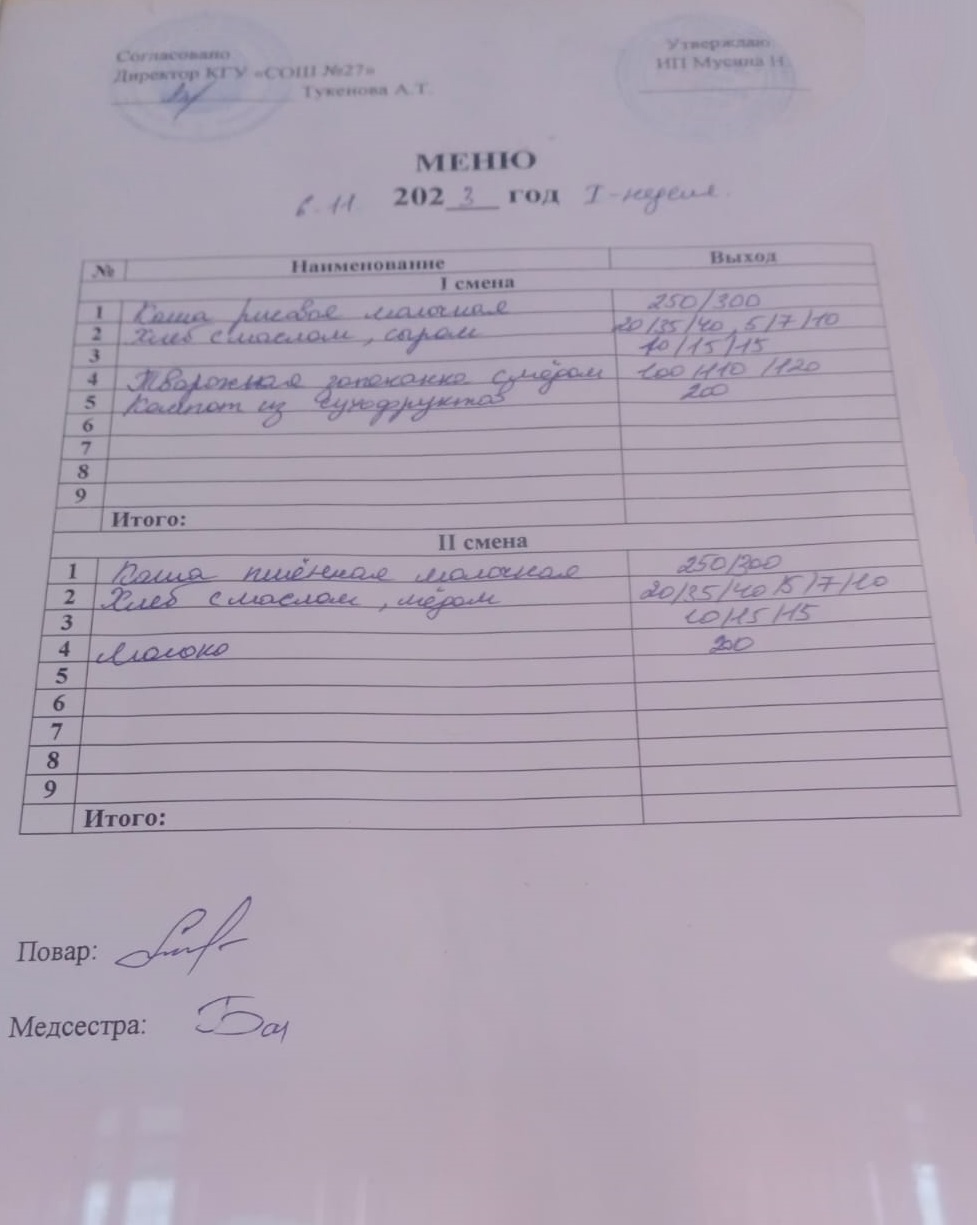 Согласовано
Утверждаю
Директор КГУ «СОШ №27»
ИП Мусина Н
Тукенова А.Т.
МЕНЮ
6.11 2023 год I-неделя.
№ Наименование Выход
I смена
1 Каша рисовая молочная 250/300
2 Хлеб с маслом, сыром 20/35/40, 5/7/10
3 10/15/15
4 Творожная запеканка с мёдом 100/110/120
5 Компот из сухофруктов 200
6
7
8
9
Итого:
II смена
1 Каша пшённая молочная 250/300
2 Хлеб с маслом, мёдом 20/35/40 5/7/10
3 10/15/15
4 Молоко 200
5
6
7
8
9
Итого:
Повар:
Медсестра: